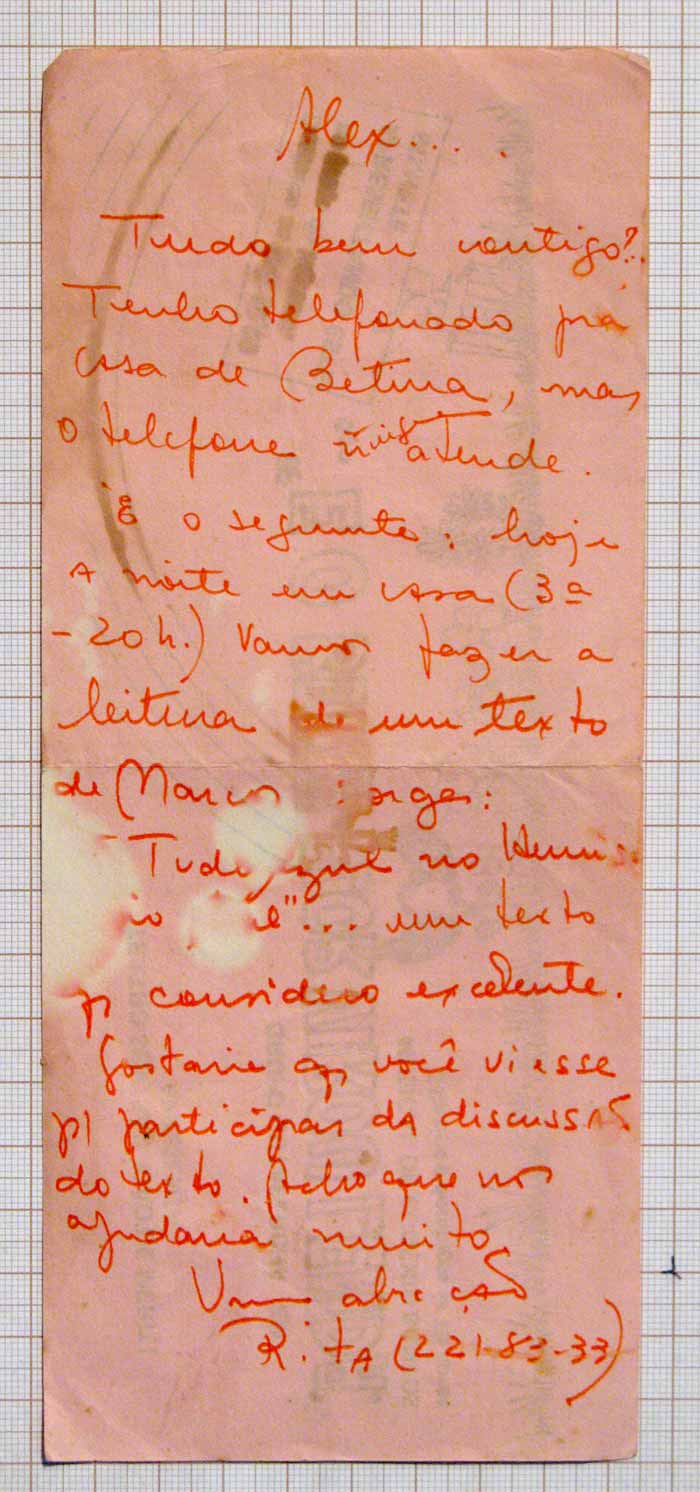 Alex....
Tudo bem contigo?
Tenho telefonado pra
casa de Betina, mas
o telefone ñ atende.
É o seguinte: hoje
a noite em casa (3ª
- 20h.) Vamos fazer a
leitura de um texto
de Marcos
Tudo azul no Hemis
um texto
considero excelente.
Gostaria q você viesse
p/ participar da discussão
do texto. Acho que nos
ajudaria muito.
Um abração
Rita (221-83-33)